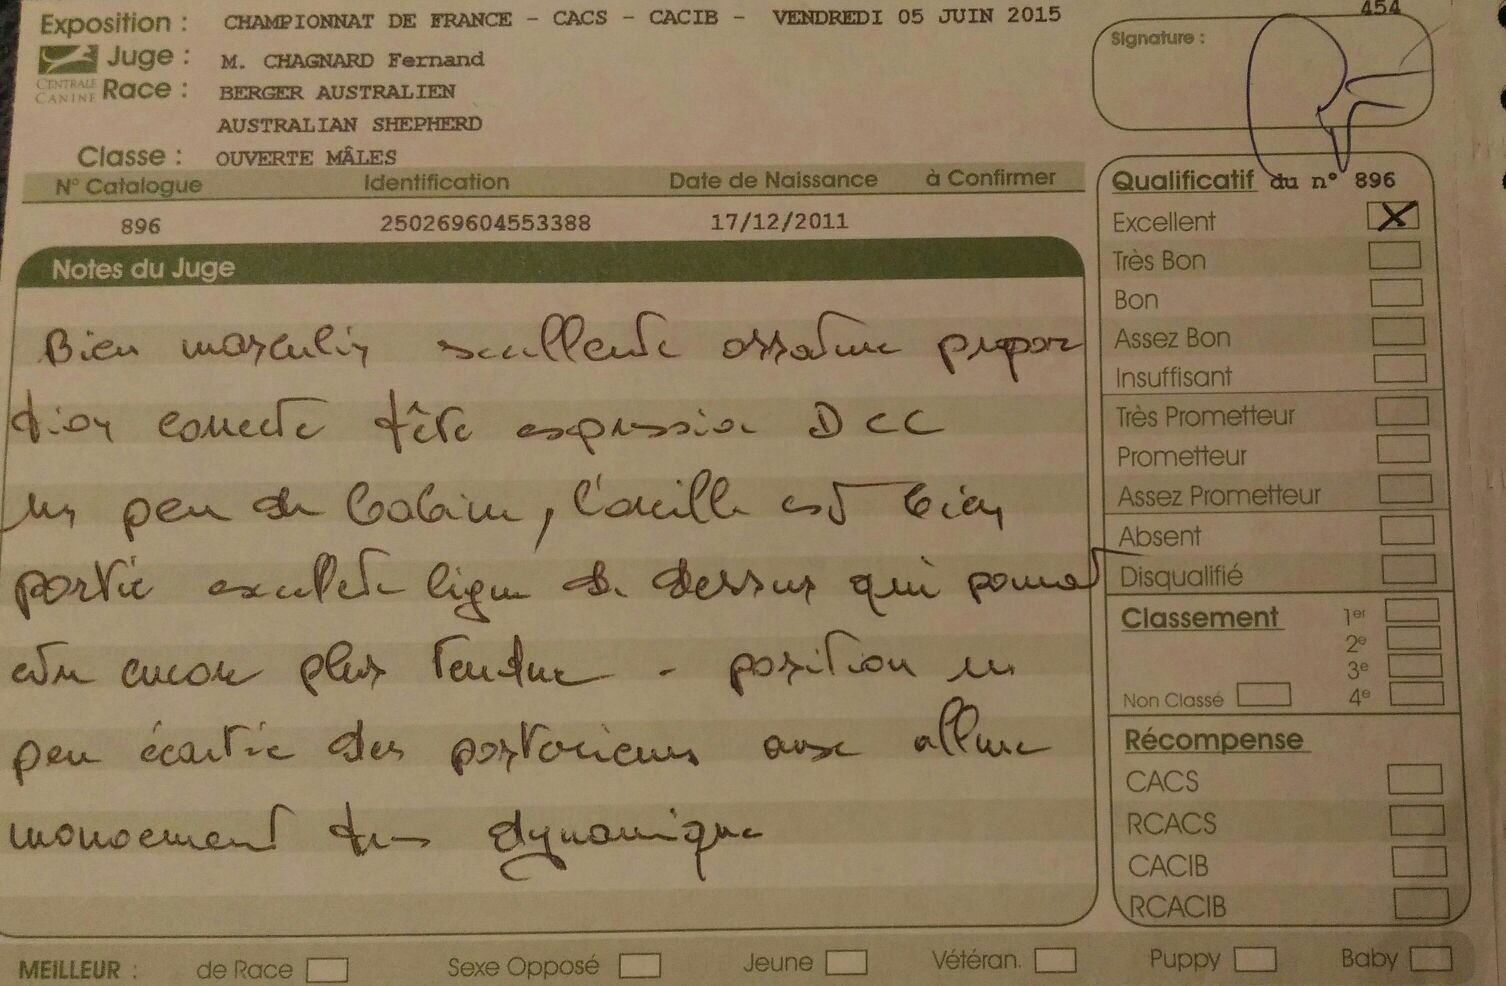 454
Exposition : CHAMPIONNAT DE FRANCE - CACS - CACIB - VENDREDI 05 JUIN 2015
Signature :
Juge : M. CHAGNARD Fernand
CENTRALE CANINE
Race : BERGER AUSTRALIEN
AUSTRALIAN SHEPHERD
Classe : OUVERTE MÂLES
N° Catalogue Identification Date de Naissance à Confirmer
896 250269604553388 17/12/2011
Notes du Juge
Bien masculin excellente ossature propor
tion correcte tête expression DCC
un peu de babine, l'oreille est bien
portée excellente ligne de dessus qui pourrait
être encore plus tendue - position un
peu écartée des postérieurs aux allure
mouvement très dynamique
Qualificatif du n° 896
Excellent X
Très Bon
Bon
Assez Bon
Insuffisant
Très Prometteur
Prometteur
Assez Prometteur
Absent
Disqualifié
Classement 1er
2e
3e
Non Classé 4e
Récompense
CACS
RCACS
CACIB
RCACIB
MEILLEUR : de Race Sexe Opposé Jeune Vétéran. Puppy Baby